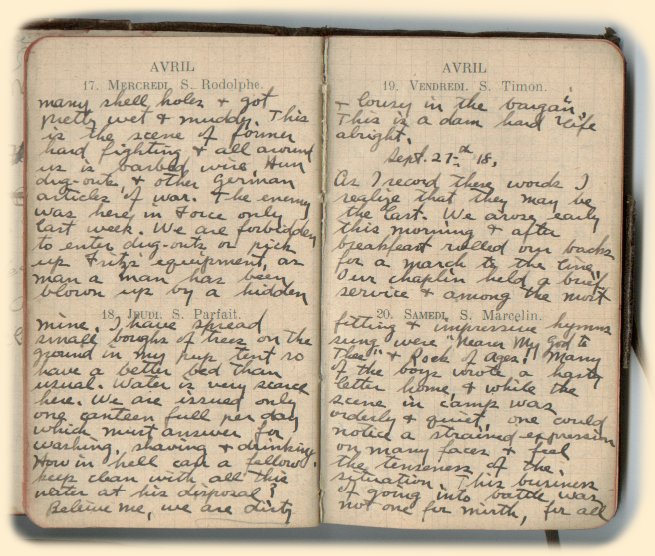 AVRIL
17. MERCREDI. S. Rodolphe.
many shell holes + got
pretty wet + muddy. This
is the scene of former
hard fighting + all around
us is barbed wire, Hun
dug-outs, + other German
articles of war. The enemy
was here in force only
last week. We are forbidden
to enter dug-outs or pick
up Fritz equipment, as
man a man has been
blown up by a hidden
18. JEUDI. S. Parfait.
mine. I have spread
small boughs of trees on the
ground in my pup tent so
have a better bed than
usual. Water is very scarce
here. We are issued only
one canteen full per day
which must answer for
washing, shaving + drinking.
How in hell can a fellow
keep clean with all this
water at his disposal?
Believe me, we are dirty
AVRIL
19. VENDREDI. S. Timon.
+ lousy in the bargain.
This is a dam hard life
alright.
Sept. 27th 18.
As I record these words I
realize that they may be
the last. We arose early
this morning + after
breakfast rolled our packs
for a march to the line.
Our chaplin held a brief
service + among the most
20. SAMEDI. S. Marcelin.
fitting + impressive hymns
sung were "Nearer My God to
Thee" + Rock of Ages." Many
of the boys wrote a hasty
letter home, + while the
scene in camp was
orderly + quiet, one could
notice a strained expression
on many faces + feel
the tenseness of the
situation. This business
of going into battle was
not one for mirth, for all